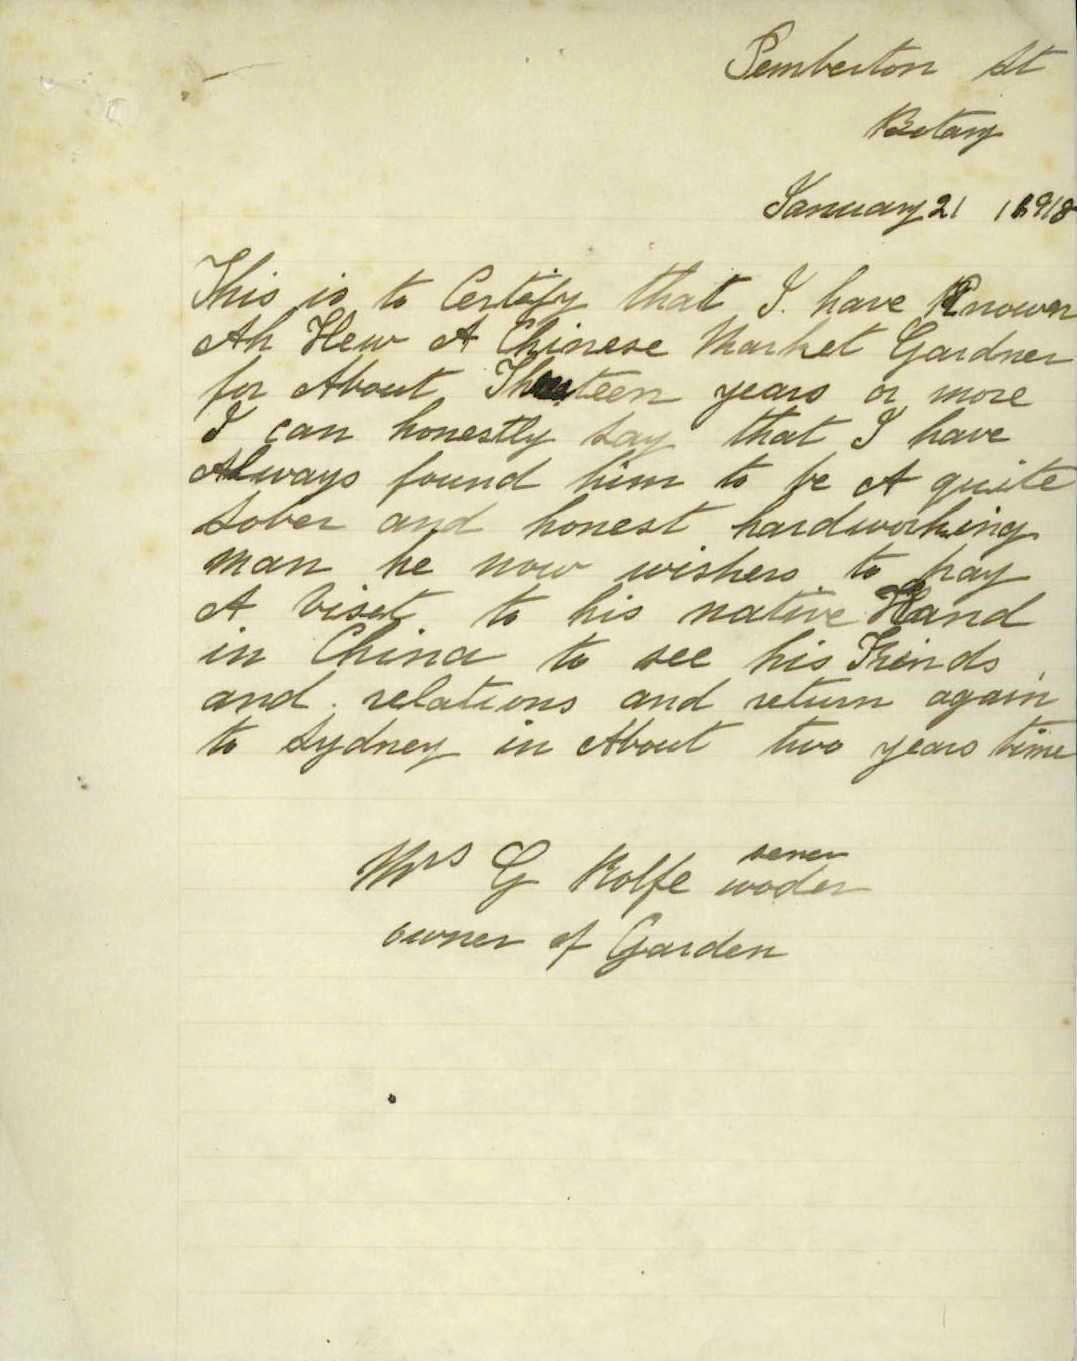 Pemberton St
Botany
January 21 1898
This is to Certify that I. have Knowen
Ah Hew A Chinese Market Gardner
for About years or more
I can honestly say that I have
Always found him to be A quite
Sober and honest hardworking
man he now wishers to pay
A Viset to his native Hand
in China to see his Friends
and relations and return again
to Sydney in About two years time
Mrs G Rolfe sener
woder
owner of Garden